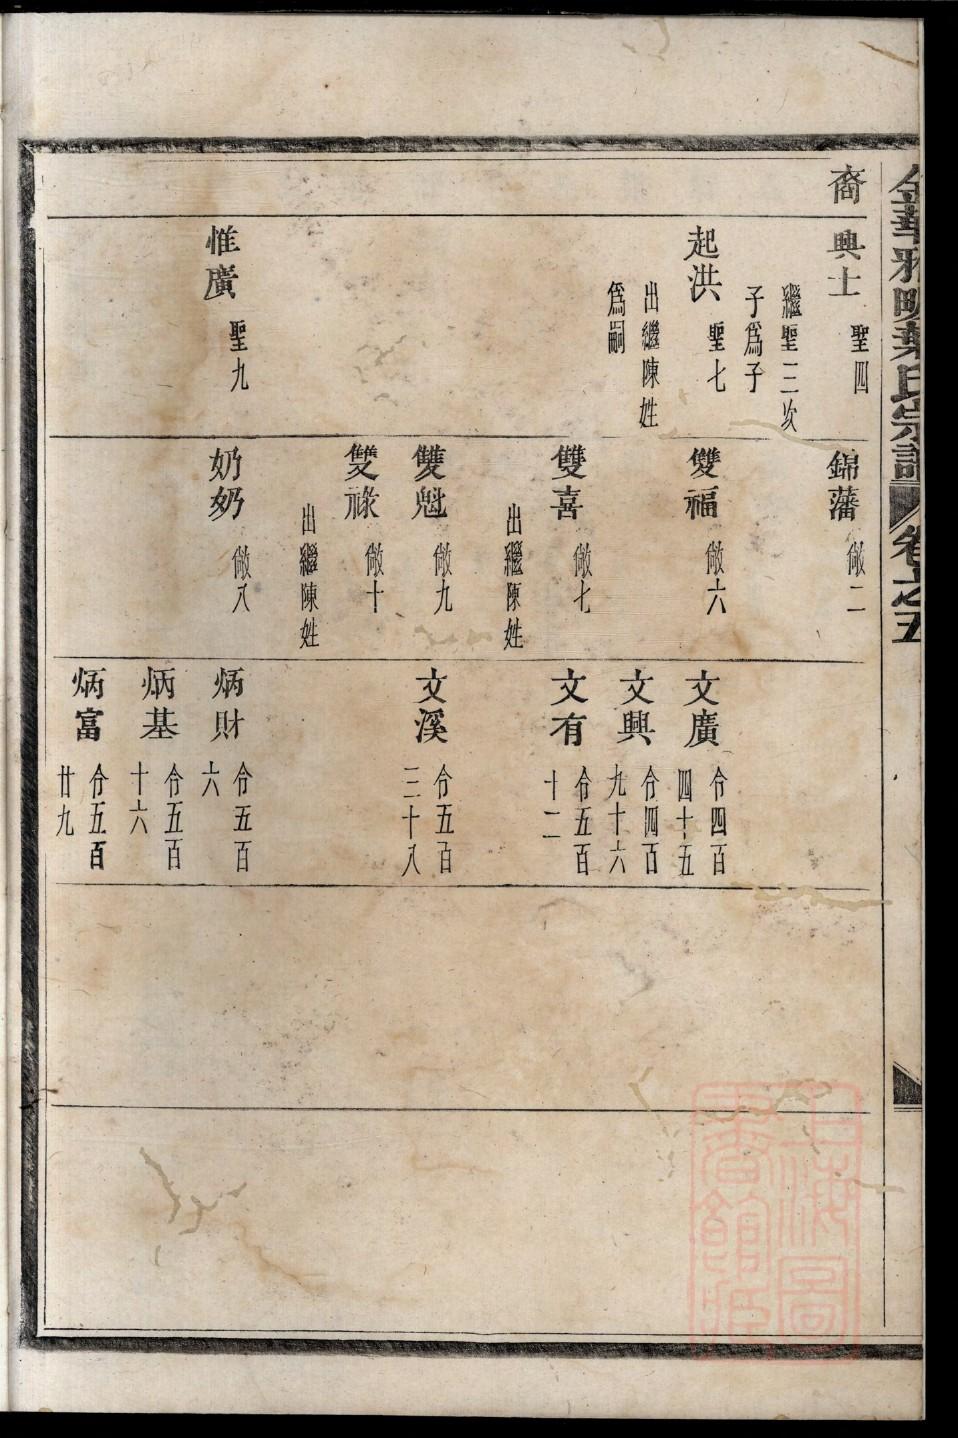 金華雅畈葉氏宗譜 卷之五
裔
興士 聖四
繼聖三次
子爲子
起洪 聖七
出繼陳姓
爲嗣
惟廣 聖九
錦藩 倣二
雙福 倣六
雙喜 倣七
出繼陳姓
雙魁 倣九
雙祿 倣十
出繼陳姓
奶奶 倣八
文廣 令四百
四十五
文興 令四百
九十六
文有 令五百
十二
文溪 令五百
三十八
炳財 令五百
六
炳基 令五百
十六
炳富 令五百
廿九
上海圖
書館藏